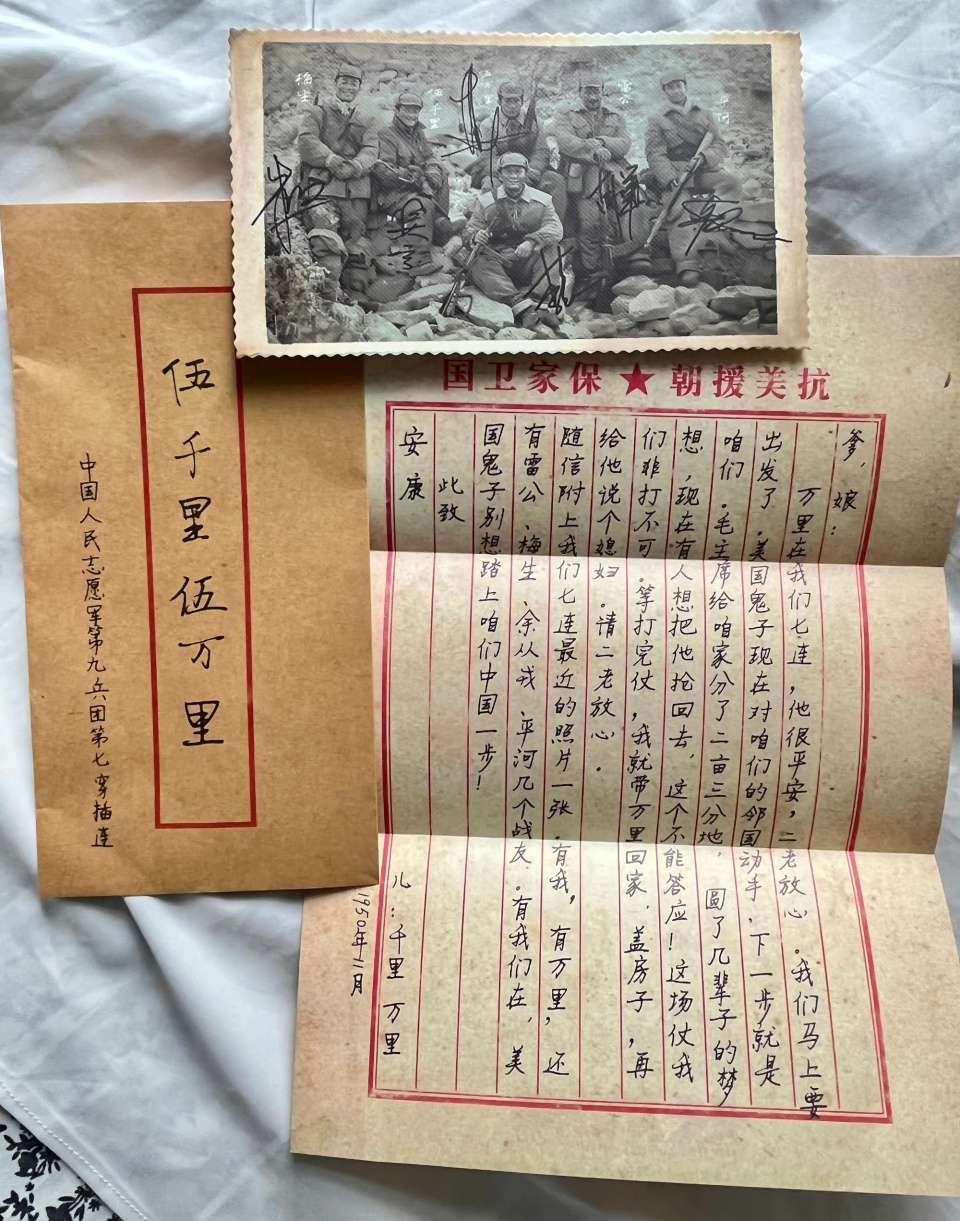 梅生
伍千里
雷公
平河
吴京
抗美援朝★保家卫国
爹,娘:
万里在我们七连,他很平安,二老放心.我们马上要
出发了.美国鬼子现在对咱们的邻国动手,下一步就是
咱们.毛主席给咱家分了二亩三分地,圆了几辈子的梦
想,现在有人想把他抢回去,这个不能答应!这场仗我
们非打不可.等打完仗,我就带万里回家.盖房子,再
给他说个媳妇.请二老放心.
随信附上我们七连最近的照片一张.有我,有万里,还
有雷公、梅生、余从戎、平河几个战友.有我们在,美
国鬼子别想踏上咱们中国一步!
此致
安康
儿:千里 万里
1950年11月
伍千里伍万里
中国人民志愿军第九兵团第七穿插连